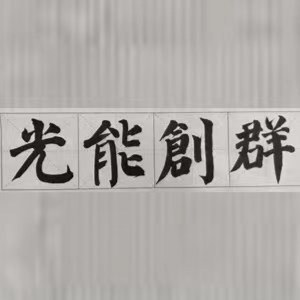 光能創群